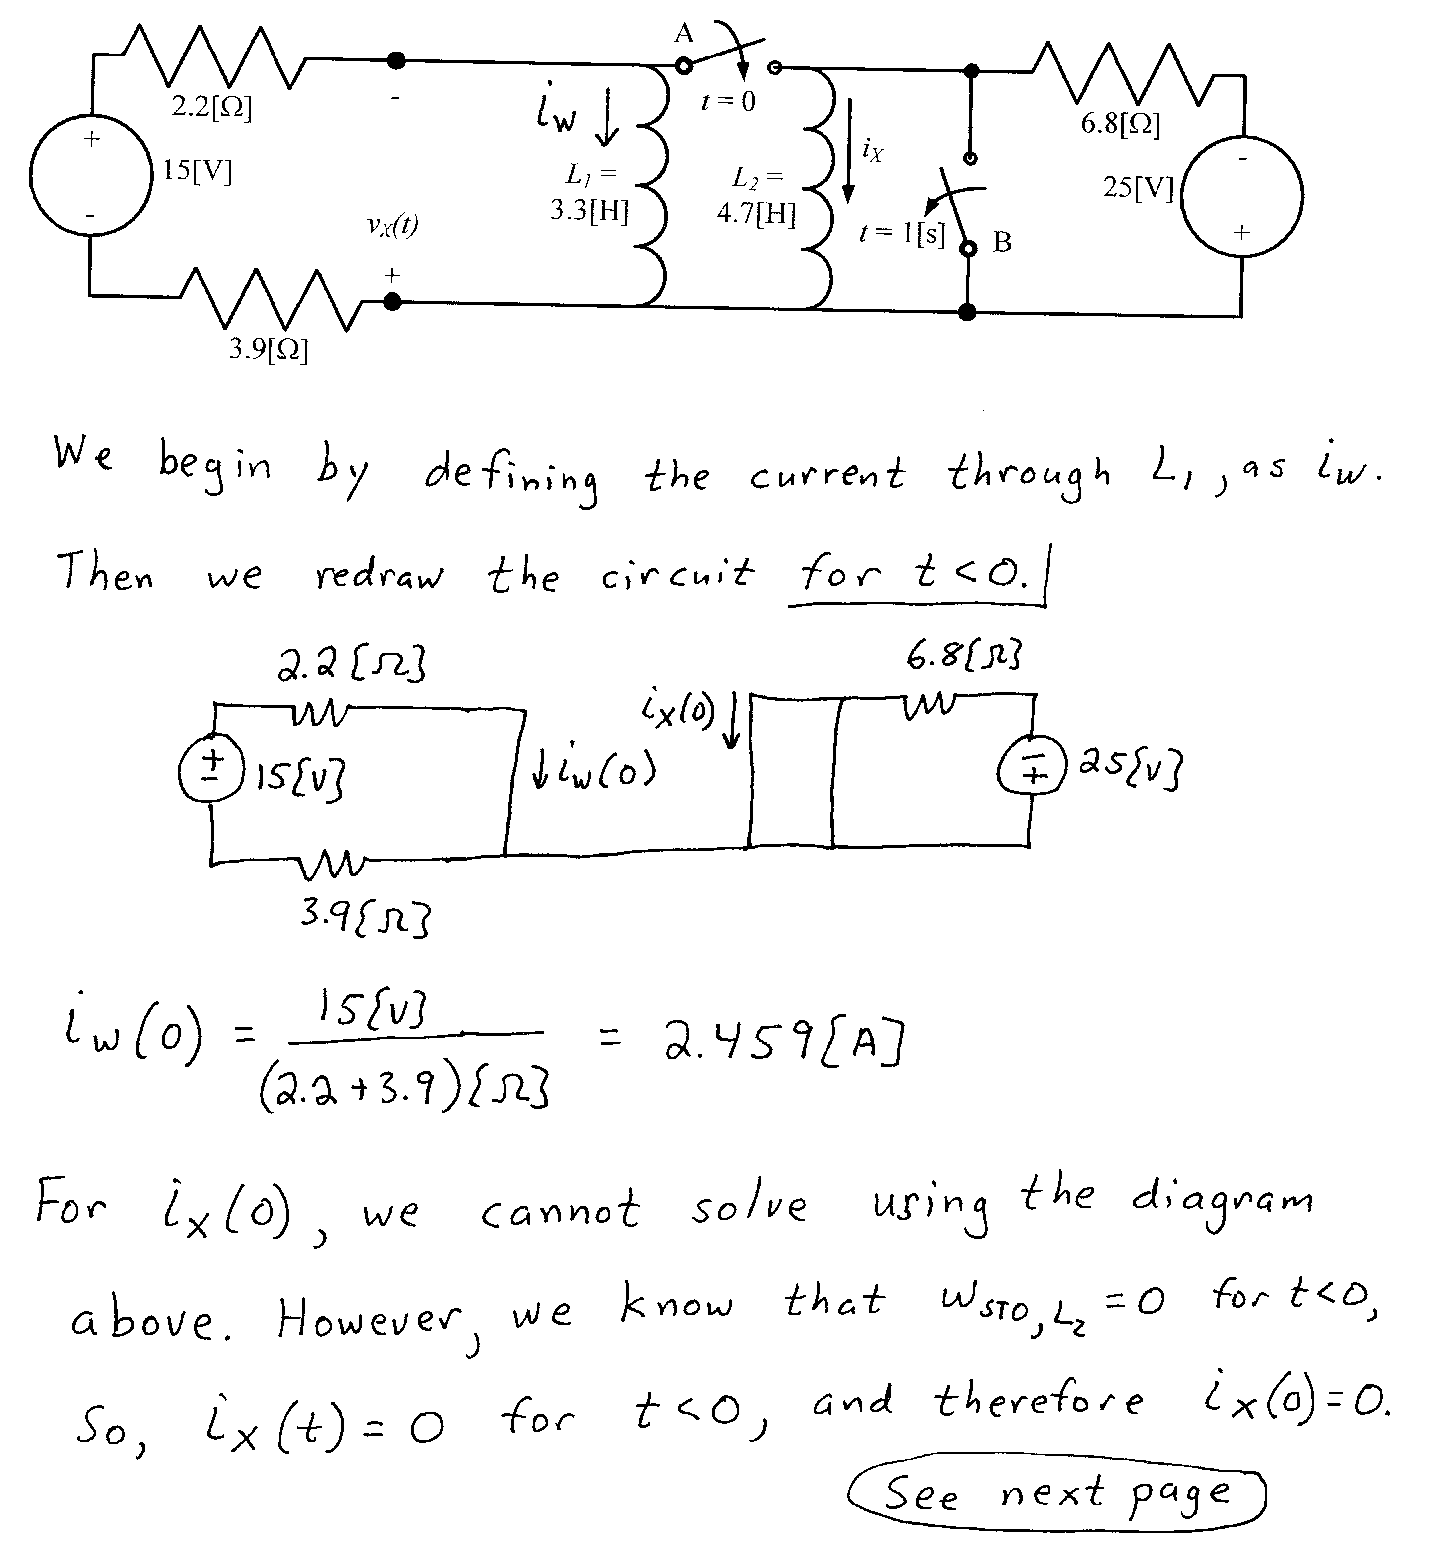 A
t = 0
2.2[Ω]
-
i_w
i_X
6.8[Ω]
+
15[V]
-
L_1 =
3.3[H]
L_2 =
4.7[H]
25[V]
-
+
v_X(t)
t = 1[s]
B
+
3.9[Ω]
We begin by defining the current through L_1, as i_w.
Then we redraw the circuit for t<0.
2.2[Ω]
6.8[Ω]
i_X(0)
+
-
15[V]
i_w(0)
-
+
25[V]
3.9[Ω]
i_w(0) = 15[V] / (2.2+3.9)[Ω] = 2.459[A]
For i_X(0), we cannot solve using the diagram
above. However, we know that W_STO,L_2 = 0 for t<0,
So, i_X(t) = 0 for t<0, and therefore i_X(0)=0.
See next page